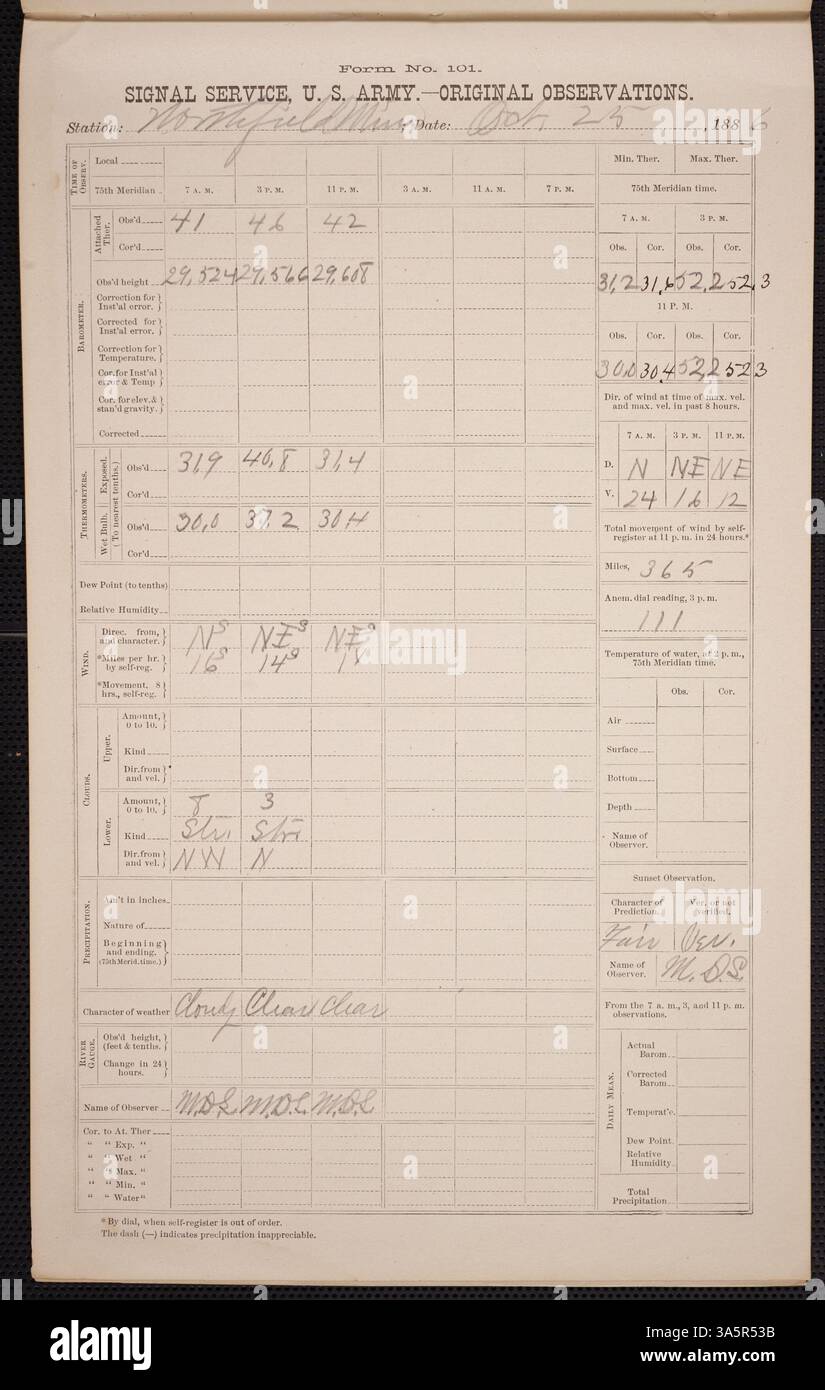 Form No. 101.
SIGNAL SERVICE, U. S. ARMY.—ORIGINAL OBSERVATIONS.
Station: Northfield Minn; Date: Oct. 25, 1886
TIME OF OBSERV.
Local
75th Meridian 7 A. M. 3 P. M. 11 P. M. 3 A. M. 11 A. M. 7 P. M.
BAROMETER.
Attached Ther.
Obs'd 41 46 42
Cor'd
Obs'd height 29,524 29,566 29,608
Correction for Inst'al error.
Corrected for Inst'al error.
Correction for Temperature.
Cor. for Inst'al error & Temp
Cor. for elev. & stan'd gravity.
Corrected
THERMOMETERS.
(To nearest tenths.)
Exposed.
Obs'd 31,9 40,8 31,4
Cor'd
Wet Bulb.
Obs'd 30,0 37,2 30,4
Cor'd
Dew Point (to tenths)
Relative Humidity
WIND.
Direc. from, and character. N s NE s NE s
*Miles per hr. by self-reg. 16 s 14 s
*Movement, 8 hrs., self-reg.
CLOUDS.
Upper.
Amount, 0 to 10.
Kind
Dir. from and vel. *
Lower.
Amount, 0 to 10. 8 3
Kind Str. Str.
Dir. from and vel. NW N
PRECIPITATION.
Am't in inches
Nature of
Beginning and ending. (75th Merid. time.)
Character of weather Cloudy Clear Clear
RIVER GAUGE.
Obs'd height, (feet & tenths.
Change in 24 hours.
Name of Observer M.D.S. M.D.S. M.D.S.
Cor. to At. Ther
" " Exp. "
" " Wet "
" " Max. "
" " Min. "
" " Water "
* By dial, when self-register is out of order.
The dash (—) indicates precipitation inappreciable.
Min. Ther. Max. Ther.
75th Meridian time.
7 A. M. 3 P. M.
Obs. Cor. Obs. Cor.
31,2 31,6 52,2 52,3
11 P. M.
Obs. Cor. Obs. Cor.
30,0 30,4 52,2 52,3
Dir. of wind at time of max. vel. and max. vel. in past 8 hours.
7 A. M. 3 P. M. 11 P. M.
D. N NE NE
V. 24 16 12
Total movement of wind by self-register at 11 p. m. in 24 hours.*
Miles, 365
Anem. dial reading, 3 p. m.
111
Temperature of water, at 2 p. m., 75th Meridian time.
Obs. Cor.
Air
Surface
Bottom
Depth
Name of Observer.
Sunset Observation.
Character of Prediction. Ver. or not verified.
Fair Ver.
Name of Observer. M. D.S.
From the 7 a. m., 3, and 11 p. m. observations.
DAILY MEAN.
Actual Barom.
Corrected Barom.
Temperat'e.
Dew Point.
Relative Humidity.
Total Precipitation.
alamy
alamy
Image ID: 3A5R53B
www.alamy.com